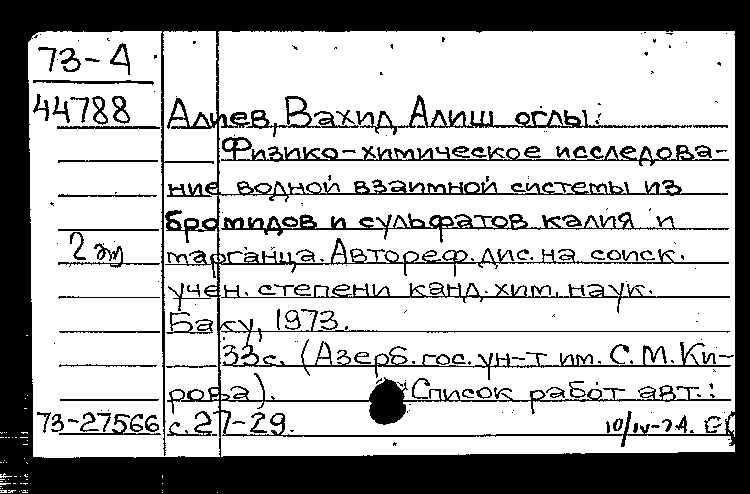 73-А
44788 Алиев, Вахид Алиш оглы.
Физико-химическое исследова-
ние водной взаимной системы из
бромидов и сульфатов калия и
2 эк марганца. Автореф. дис. на соиск.
учен. степени канд. хим. наук.
Баку, 1973.
33с. (Азерб. гос. ун-т им. С. М. Ки-
рова). Список работ авт.:
73-27566 с. 27-29. 10/IV-74.